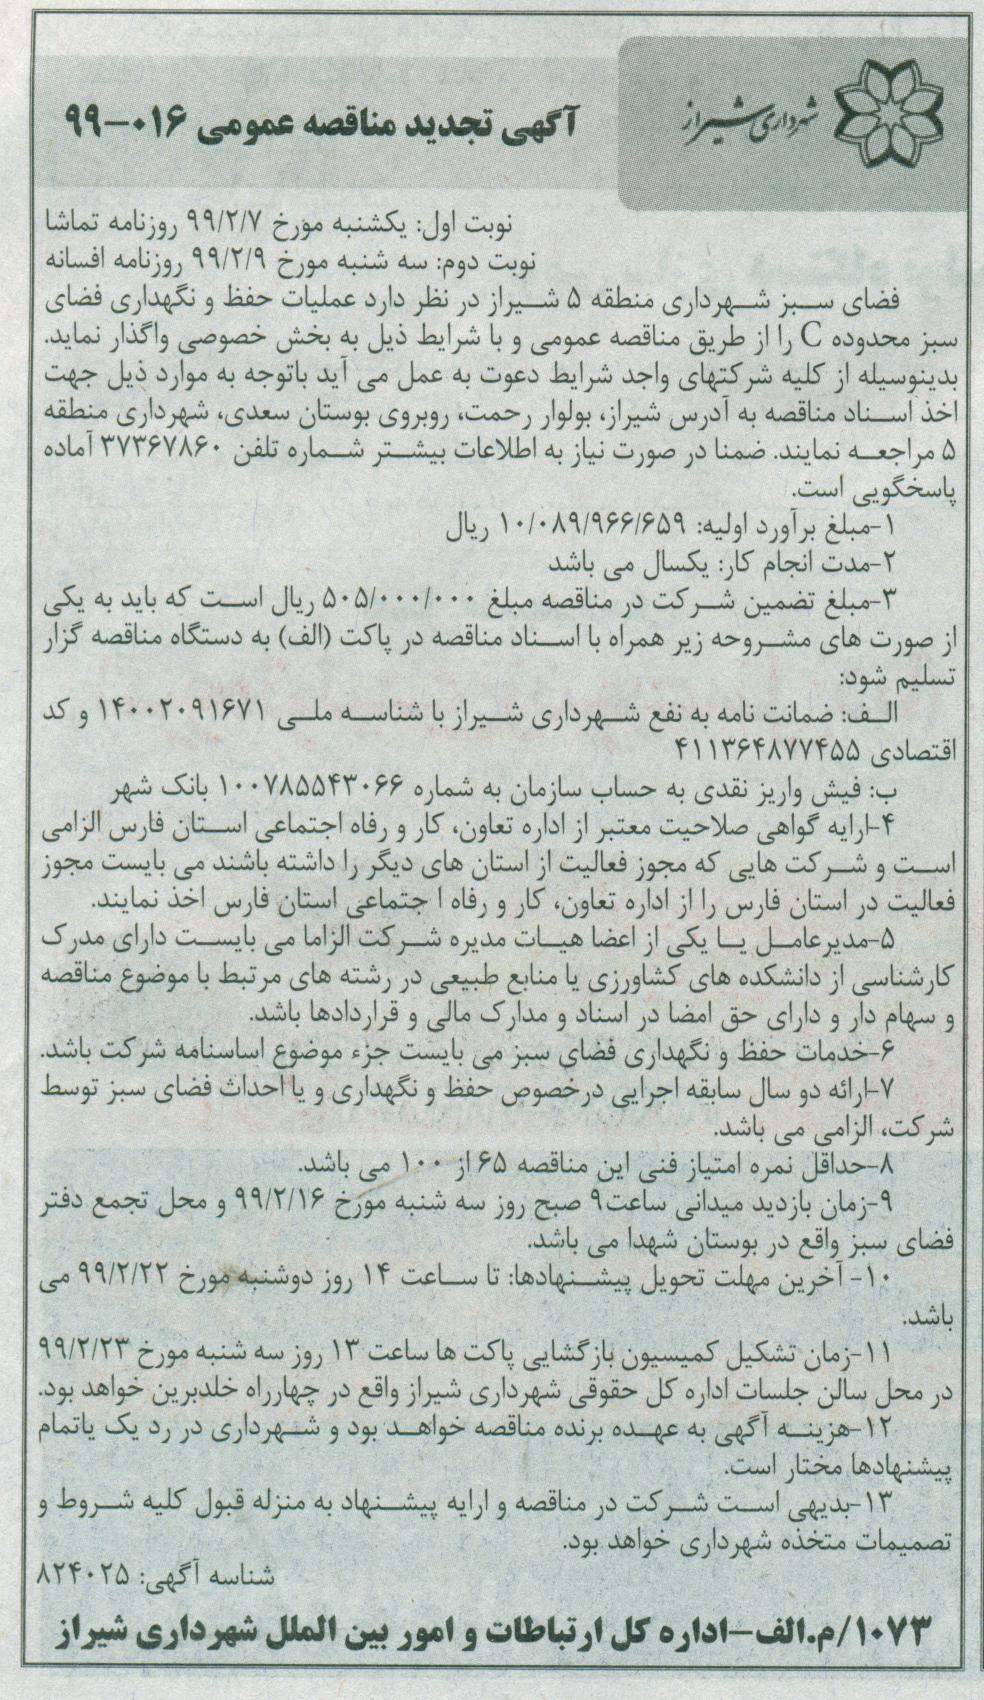 شهرداری شیراز
آگهی تجدید مناقصه عمومی ۰۱۶-۹۹
نوبت اول: یکشنبه مورخ ۹۹/۲/۷ روزنامه تماشا
نوبت دوم: سه شنبه مورخ ۹۹/۲/۹ روزنامه افسانه
فضای سبز شهرداری منطقه ۵ شیراز در نظر دارد عملیات حفظ و نگهداری فضای
سبز محدوده C را از طریق مناقصه عمومی و با شرایط ذیل به بخش خصوصی واگذار نماید.
بدینوسیله از کلیه شرکتهای واجد شرایط دعوت به عمل می آید باتوجه به موارد ذیل جهت
اخذ اسناد مناقصه به آدرس شیراز، بولوار رحمت، روبروی بوستان سعدی، شهرداری منطقه
۵ مراجعه نمایند. ضمنا در صورت نیاز به اطلاعات بیشتر شماره تلفن ۳۷۳۶۷۸۶۰ آماده
پاسخگویی است.
۱-مبلغ برآورد اولیه: ۱۰/۰۸۹/۹۶۶/۶۵۹ ریال
۲-مدت انجام کار: یکسال می باشد
۳-مبلغ تضمین شرکت در مناقصه مبلغ ۵۰۵/۰۰۰/۰۰۰ ریال است که باید به یکی
از صورت های مشروحه زیر همراه با اسناد مناقصه در پاکت (الف) به دستگاه مناقصه گزار
تسلیم شود:
الف: ضمانت نامه به نفع شهرداری شیراز با شناسه ملی ۱۴۰۰۲۰۹۱۶۷۱ و کد
اقتصادی ۴۱۱۳۶۴۸۷۷۴۵۵
ب: فیش واریز نقدی به حساب سازمان به شماره ۱۰۰۷۸۵۵۴۳۰۶۶ بانک شهر
۴-ارایه گواهی صلاحیت معتبر از اداره تعاون، کار و رفاه اجتماعی استان فارس الزامی
است و شرکت هایی که مجوز فعالیت از استان های دیگر را داشته باشند می بایست مجوز
فعالیت در استان فارس را از اداره تعاون، کار و رفاه ا جتماعی استان فارس اخذ نمایند.
۵-مدیرعامل یا یکی از اعضا هیات مدیره شرکت الزاما می بایست دارای مدرک
کارشناسی از دانشکده های کشاورزی یا منابع طبیعی در رشته های مرتبط با موضوع مناقصه
و سهام دار و دارای حق امضا در اسناد و مدارک مالی و قراردادها باشد.
۶-خدمات حفظ و نگهداری فضای سبز می بایست جزء موضوع اساسنامه شرکت باشد.
۷-ارائه دو سال سابقه اجرایی درخصوص حفظ و نگهداری و یا احداث فضای سبز توسط
شرکت، الزامی می باشد.
۸-حداقل نمره امتیاز فنی این مناقصه ۶۵ از ۱۰۰ می باشد.
۹-زمان بازدید میدانی ساعت۹ صبح روز سه شنبه مورخ ۹۹/۲/۱۶ و محل تجمع دفتر
فضای سبز واقع در بوستان شهدا می باشد.
۱۰- آخرین مهلت تحویل پیشنهادها: تا ساعت ۱۴ روز دوشنبه مورخ ۹۹/۲/۲۲ می
باشد.
۱۱-زمان تشکیل کمیسیون بازگشایی پاکت ها ساعت ۱۳ روز سه شنبه مورخ ۹۹/۲/۲۳
در محل سالن جلسات اداره کل حقوقی شهرداری شیراز واقع در چهارراه خلدبرین خواهد بود.
۱۲-هزینه آگهی به عهده برنده مناقصه خواهد بود و شهرداری در رد یک یاتمام
پیشنهادها مختار است.
۱۳-بدیهی است شرکت در مناقصه و ارایه پیشنهاد به منزله قبول کلیه شروط و
تصمیمات متخذه شهرداری خواهد بود.
شناسه آگهی: ۸۲۴۰۲۵
۱۰۷۳/م.الف-اداره کل ارتباطات و امور بین الملل شهرداری شیراز